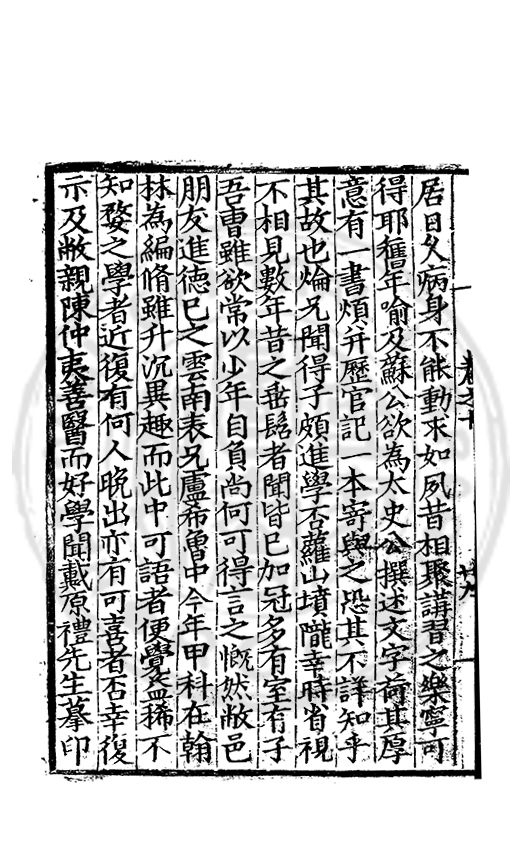 居日久病身不能動求如夙昔相聚講習之樂寧可
得耶舊年喻及蘇公欲為太史公撰述文字荷其厚
意有一書煩并歷官記一本寄與之恐其不詳知乎
其故也煥兄聞得子頗進學否蘿山墳隴幸時省視
不相見數年昔之垂髫者聞皆已加冠多有室有子
吾曹雖欲常以少年自負尚何可得言之慨然敝邑
朋友進德已之雲南表兄盧希魯中今年甲科在翰
林為編脩雖升沉異趣而此中可語者便覺益稀不
知婺之學者近復有何人晚出亦有可喜者否幸復
示及敝親陳仲夷善醫而好學聞戴原禮先生摹印
卷之十
廿九